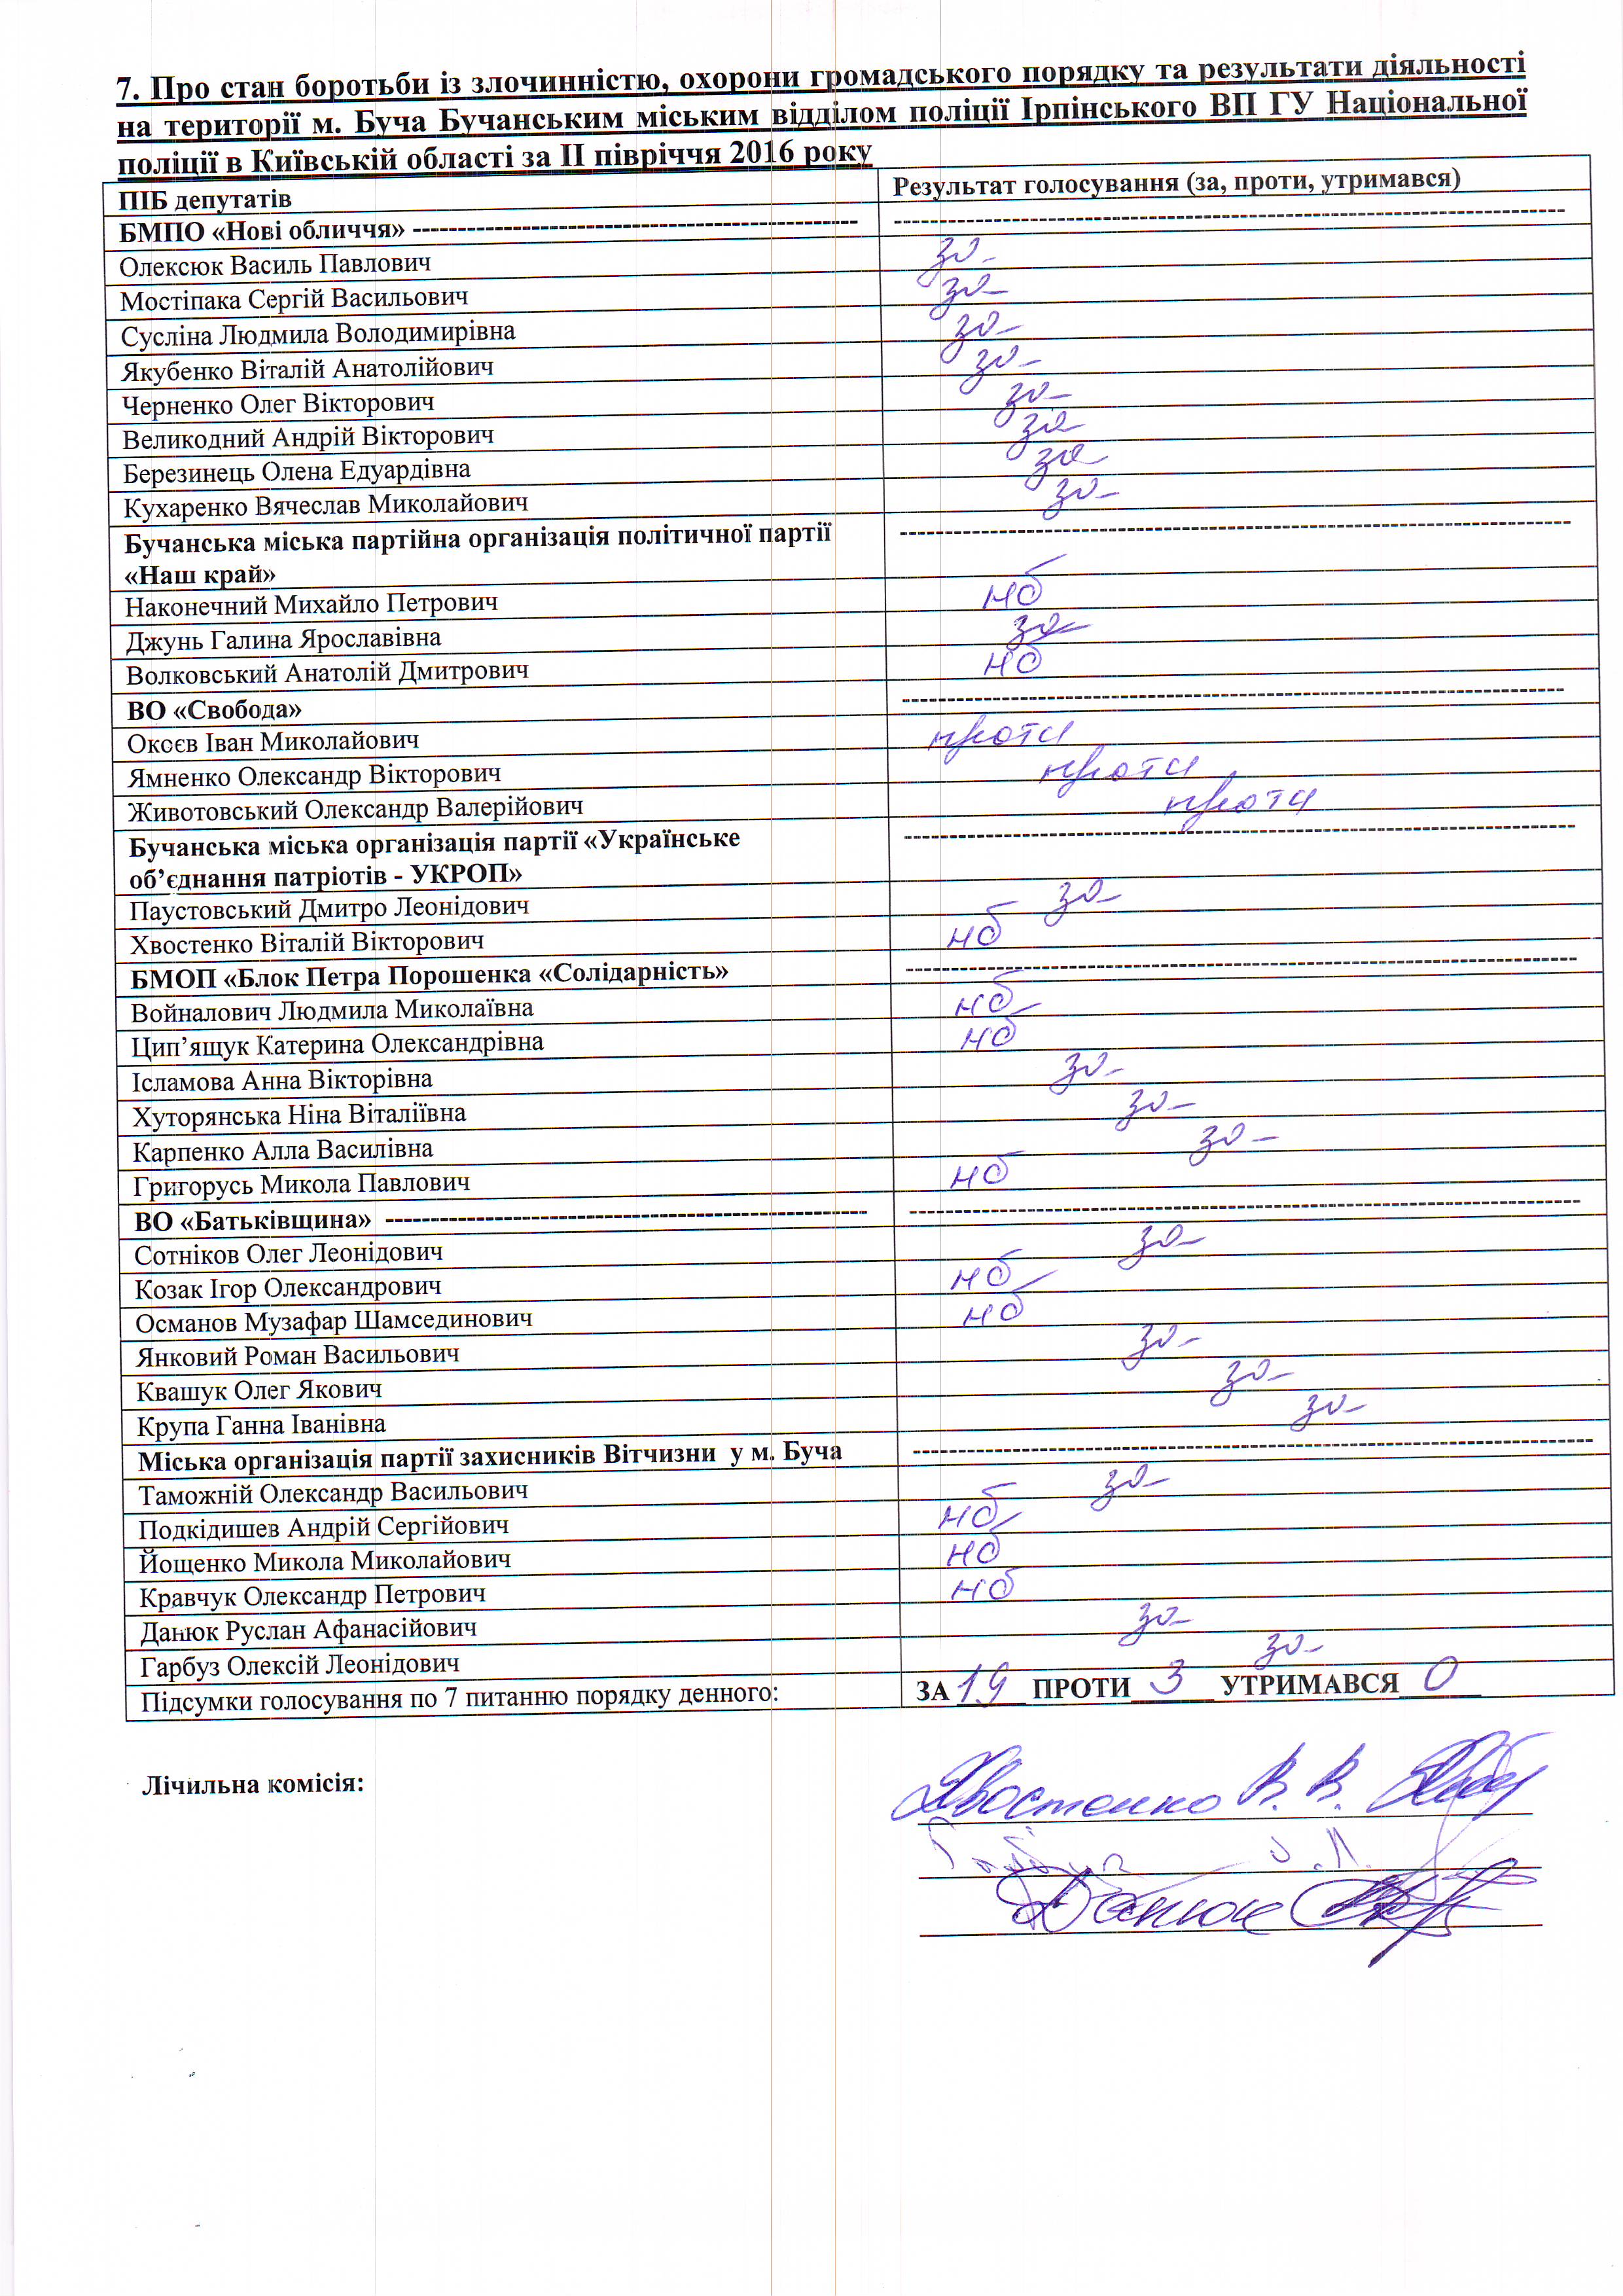 7. Про стан боротьби із злочинністю, охорони громадського порядку та результати діяльності
на території м. Буча Бучанським міським відділом поліції Ірпінського ВП ГУ Національної
поліції в Київській області за ІІ півріччя 2016 року
ПІБ депутатів Результат голосування (за, проти, утримався)
БМПО «Нові обличчя» ------------------------------------------------ ------------------------------------------------
Олексюк Василь Павлович за
Мостіпака Сергій Васильович за
Сусліна Людмила Володимирівна за
Якубенко Віталій Анатолійович за
Черненко Олег Вікторович за
Великодний Андрій Вікторович за
Березинець Олена Едуардівна за
Кухаренко Вячеслав Миколайович за
Бучанська міська партійна організація політичної партії ------------------------------------------------
«Наш край»
Наконечний Михайло Петрович нб
Джунь Галина Ярославівна за
Волковський Анатолій Дмитрович нб
ВО «Свобода» ------------------------------------------------
Оксєв Іван Миколайович проти
Ямненко Олександр Вікторович проти
Животовський Олександр Валерійович проти
Бучанська міська організація партії «Українське ------------------------------------------------
об’єднання патріотів - УКРОП»
Паустовський Дмитро Леонідович за
Хвостенко Віталій Вікторович нб
БМОП «Блок Петра Порошенка «Солідарність» ------------------------------------------------
Войналович Людмила Миколаївна нб
Цип’ящук Катерина Олександрівна нб
Ісламова Анна Вікторівна за
Хуторянська Ніна Віталіївна за
Карпенко Алла Василівна за
Григорусь Микола Павлович нб
ВО «Батьківщина» ------------------------------------------------ ------------------------------------------------
Сотніков Олег Леонідович за
Козак Ігор Олександрович нб
Османов Музафар Шамсединович нб
Янковий Роман Васильович за
Квашук Олег Якович за
Крупа Ганна Іванівна за
Міська організація партії захисників Вітчизни у м. Буча ------------------------------------------------
Таможній Олександр Васильович за
Подкідишев Андрій Сергійович нб
Йощенко Микола Миколайович нб
Кравчук Олександр Петрович нб
Данюк Руслан Афанасійович за
Гарбуз Олексій Леонідович за
Підсумки голосування по 7 питанню порядку денного: ЗА 19 ПРОТИ 3 УТРИМАВСЯ 0
Лічильна комісія: Хвостенко В. В.
Гарбуз О.Л.
Данюк